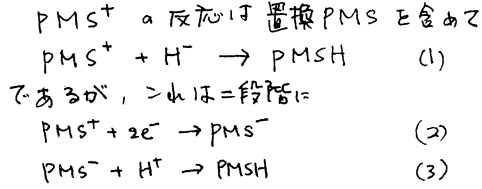 PMS⁺ の反応は 置換PMS を含めて
PMS⁺ + H⁻ → PMSH (1)
であるが, これは二段階に
PMS⁺ + 2e⁻ → PMS⁻ (2)
PMS⁻ + H⁺ → PMSH (3)